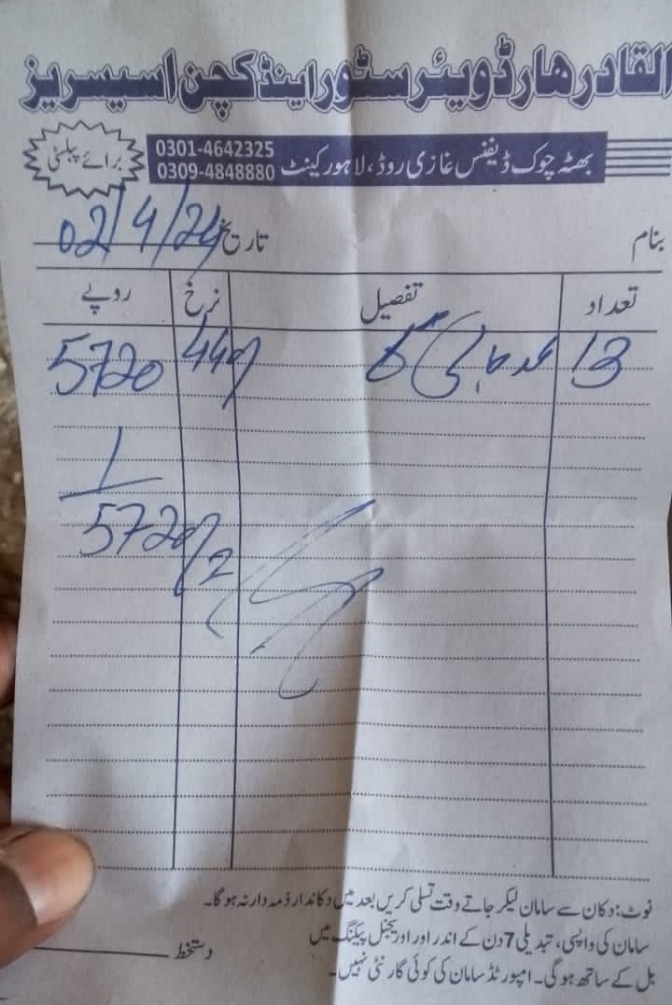 القادر ھارڈویئر سٹور اینڈ کچن اسیسریز
بھٹہ چوک ڈیفنس غازی روڈ، لاہور کینٹ 0301-4642325
0309-4848880
برائے پبلسٹی
بنام
تاریخ 02/4/24
تعداد تفصیل نرخ روپے
13 عدد 440/ 5720
5720/2
نوٹ: دکان سے سامان لیکر جاتے وقت تسلی کریں بعد میں دکاندار ذمہ دار نہ ہوگا۔
سامان کی واپسی، تبدیلی 7 دن کے اندر اور اوریجنل پیکنگ میں
بل کے ساتھ ہوگی۔ امپورٹڈ سامان کی کوئی گارنٹی نہیں۔
دستخط